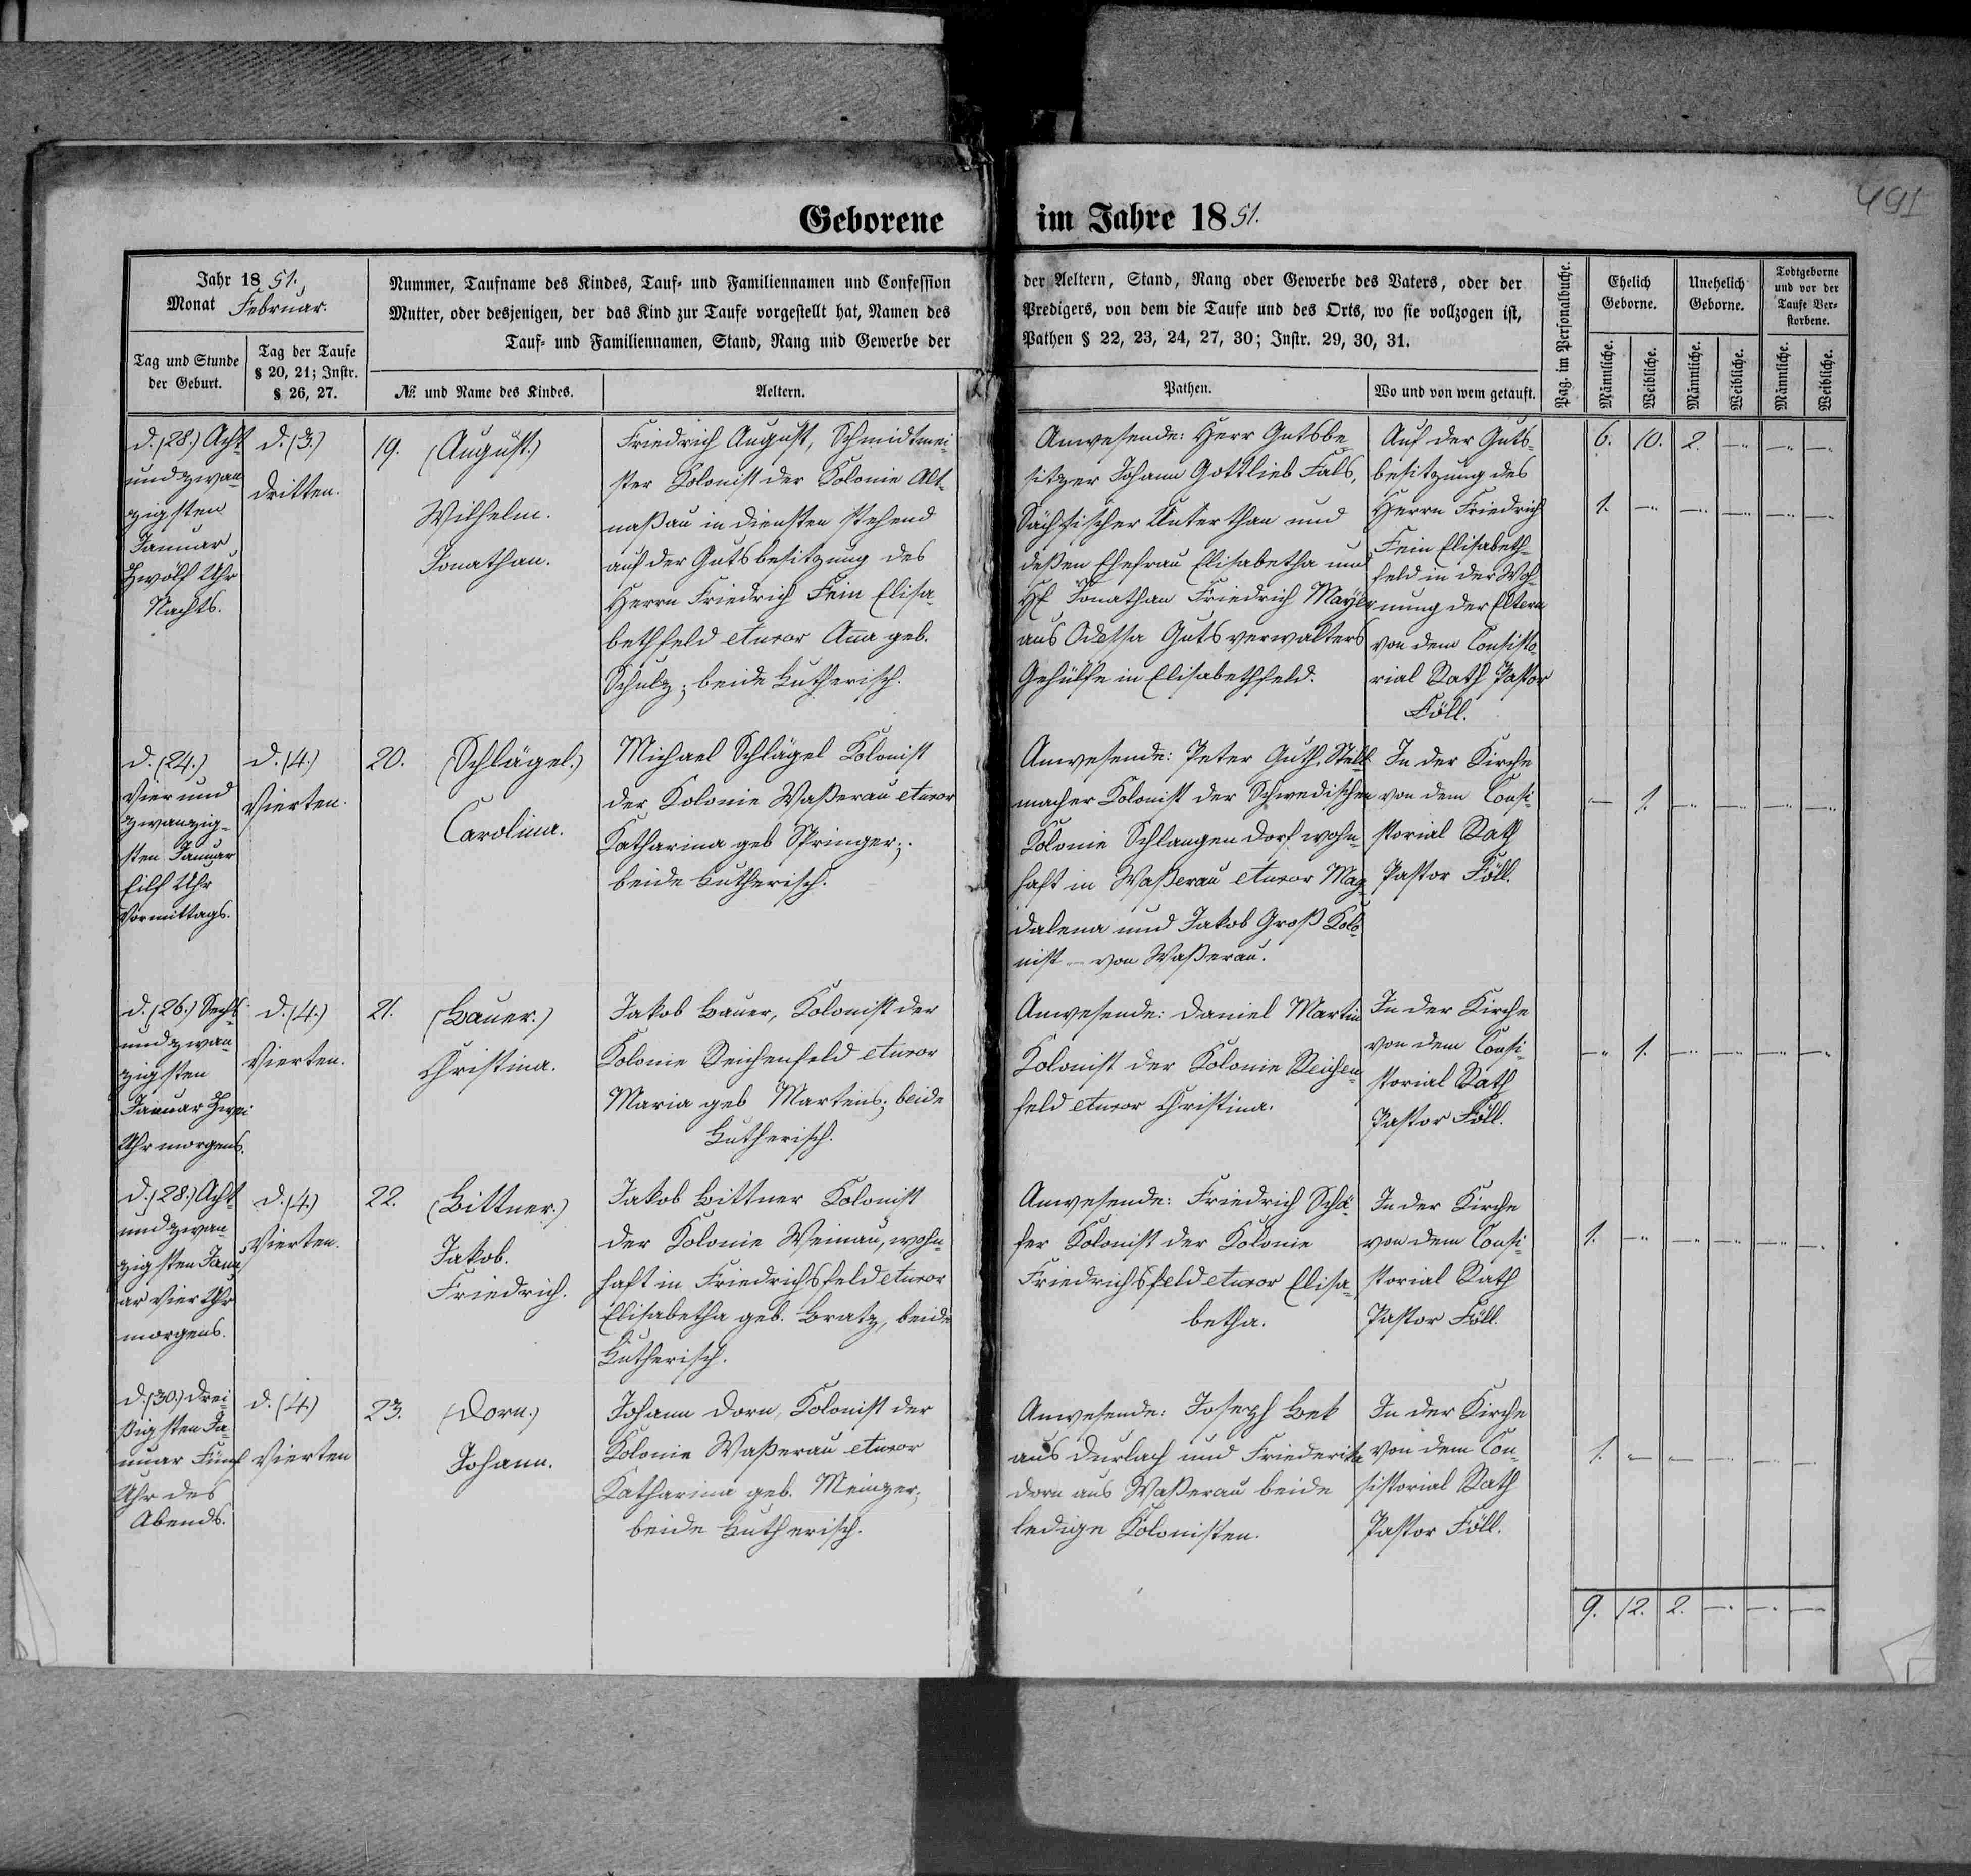 491
Geborene im Jahre 1851.
Jahr 1851.
Monat Februar.
Tag und Stunde
der Geburt.
Tag der Taufe
§ 20, 21; Instr.
§ 26, 27.
Nummer, Taufname des Kindes, Tauf- und Familiennamen und Confession
Mutter, oder desjenigen, der das Kind zur Taufe vorgestellt hat, Namen des
Tauf- und Familiennamen, Stand, Rang und Gewerbe der
№ und Name des Kindes.
Aeltern.
der Aeltern, Stand, Rang oder Gewerbe des Vaters, oder der
Predigers, von dem die Taufe und des Orts, wo sie vollzogen ist,
Pathen § 22, 23, 24, 27, 30; Instr. 29, 30, 31.
Pathen.
Wo und von wem getauft.
Pag. im Personalbuche.
Ehelich
Geborne.
Unehelich
Geborne.
Todtgeborne
und vor der
Taufe Ver-
storbene.
Männliche.
Weibliche.
Männliche.
Weibliche.
Männliche.
Weibliche.
d. (28.) Acht
und zwan-
zigsten
Januar
Zwölf Uhr
Nachts.
d. (3.)
dritten.
19. (August.)
Wilhelm.
Jonathan.
Friedrich August, Schmidtmei-
ster Kolonist der Kolonie Alt-
naßau in diensten stehend
auf der Gutsbesitzung des
Herrn Friedrich Fein Elisa-
bethfeld et uxor Anna geb.
Schulz; beide Lutherisch.
Anwesende: Herr Gutsbe
sitzer Johann Gottlieb Fals,
Sächsischer Unterthan und
deßen Ehefrau Elisabetha und
H Jonathan Friedrich Mayer
aus Odessa Gutsverwalters
Gehülfe in Elisabethfeld.
Auf der Guts-
besitzung des
Herrn Friedrich
Fein Elisabeth-
feld in der Woh-
nung der Eltern
von dem Consisto-
rial Rath Pastor
Föll.
6. 10. 2. — — —
1. — — — — —
d. (24.)
Vier und
zwanzig-
sten Januar
Eilf Uhr
Vormittags.
d. (4.)
Vierten.
20. (Schlägel.)
Carolina.
Michael Schlägel Kolonist
der Kolonie Waßerau et uxor
Katharina geb Springer;
beide Lutherisch.
Anwesende: Peter Guth, Stell-
macher Kolonist der Schwedischen
Kolonie Schlangendorf wohn-
haft in Waßerau et uxor Mag-
dalena und Jakob Groß Kolo-
nist - von Waßerau.
In der Kirche
von dem Consi-
storial Rath
Pastor Föll.
— 1. — — — —
d. (26.) Sechs-
und zwan-
zigsten
Januar Zwei
Uhr morgens.
d. (4.)
Vierten.
21. (Bauer.)
Christina.
Jakob Bauer, Kolonist der
Kolonie Reichenfeld et uxor
Maria geb Martens; beide
Lutherisch.
Anwesende: Daniel Martin
Kolonist der Kolonie Reichen-
feld et uxor Christina.
In der Kirche
von dem Consi-
storial Rath
Pastor Föll.
— 1. — — — —
d. (28.) Acht-
und zwan-
zigsten Janu-
ar Vier Uhr
morgens.
d. (4.)
Vierten.
22. (Bittner.)
Jakob.
Friedrich.
Jakob Bittner Kolonist
der Kolonie Weinau, wohn-
haft in Friedrichsfeld et uxor
Elisabetha geb. Bratz, beide
Lutherisch.
Anwesende: Friedrich Schä-
fer Kolonist der Kolonie
Friedrichsfeld et uxor Elisa-
betha.
In der Kirche
von dem Consi-
storial Rath
Pastor Föll.
1. — — — — —
d. (30.) Drei-
ßigsten Ja-
nuar Fünf
Uhr des
Abends.
d. (4.)
Vierten
23. (Dorn.)
Johann.
Johann Dorn, Kolonist der
Kolonie Waßerau et uxor
Katharina geb. Meinzer;
beide Lutherisch.
Anwesende: Joseph Bek
aus Durlach und Friederika
Dorn aus Waßerau beide
ledige Kolonisten.
In der Kirche
von dem Con-
sistorial Rath
Pastor Föll.
1. — — — — —
9. 12. 2. — — —